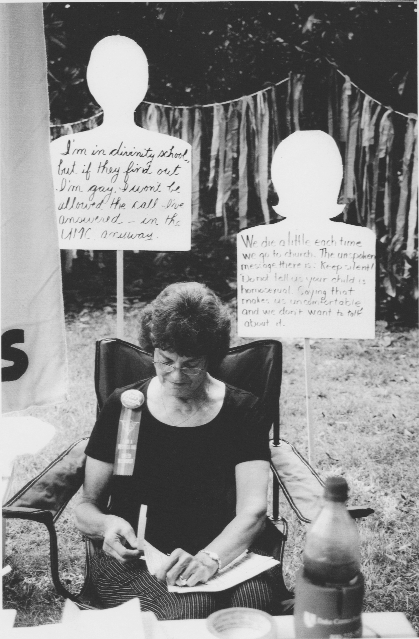 I'm in divinity school,
but if they find out
I'm gay, I won't be
allowed the call I've
answered – in the
UMC anyway.
We die a little each time
we go to church. The unspoken
message there is: Keep silent!
Do not tell us your child is
homosexual. Saying that
makes us uncomfortable
and we don't want to talk
about it.
s